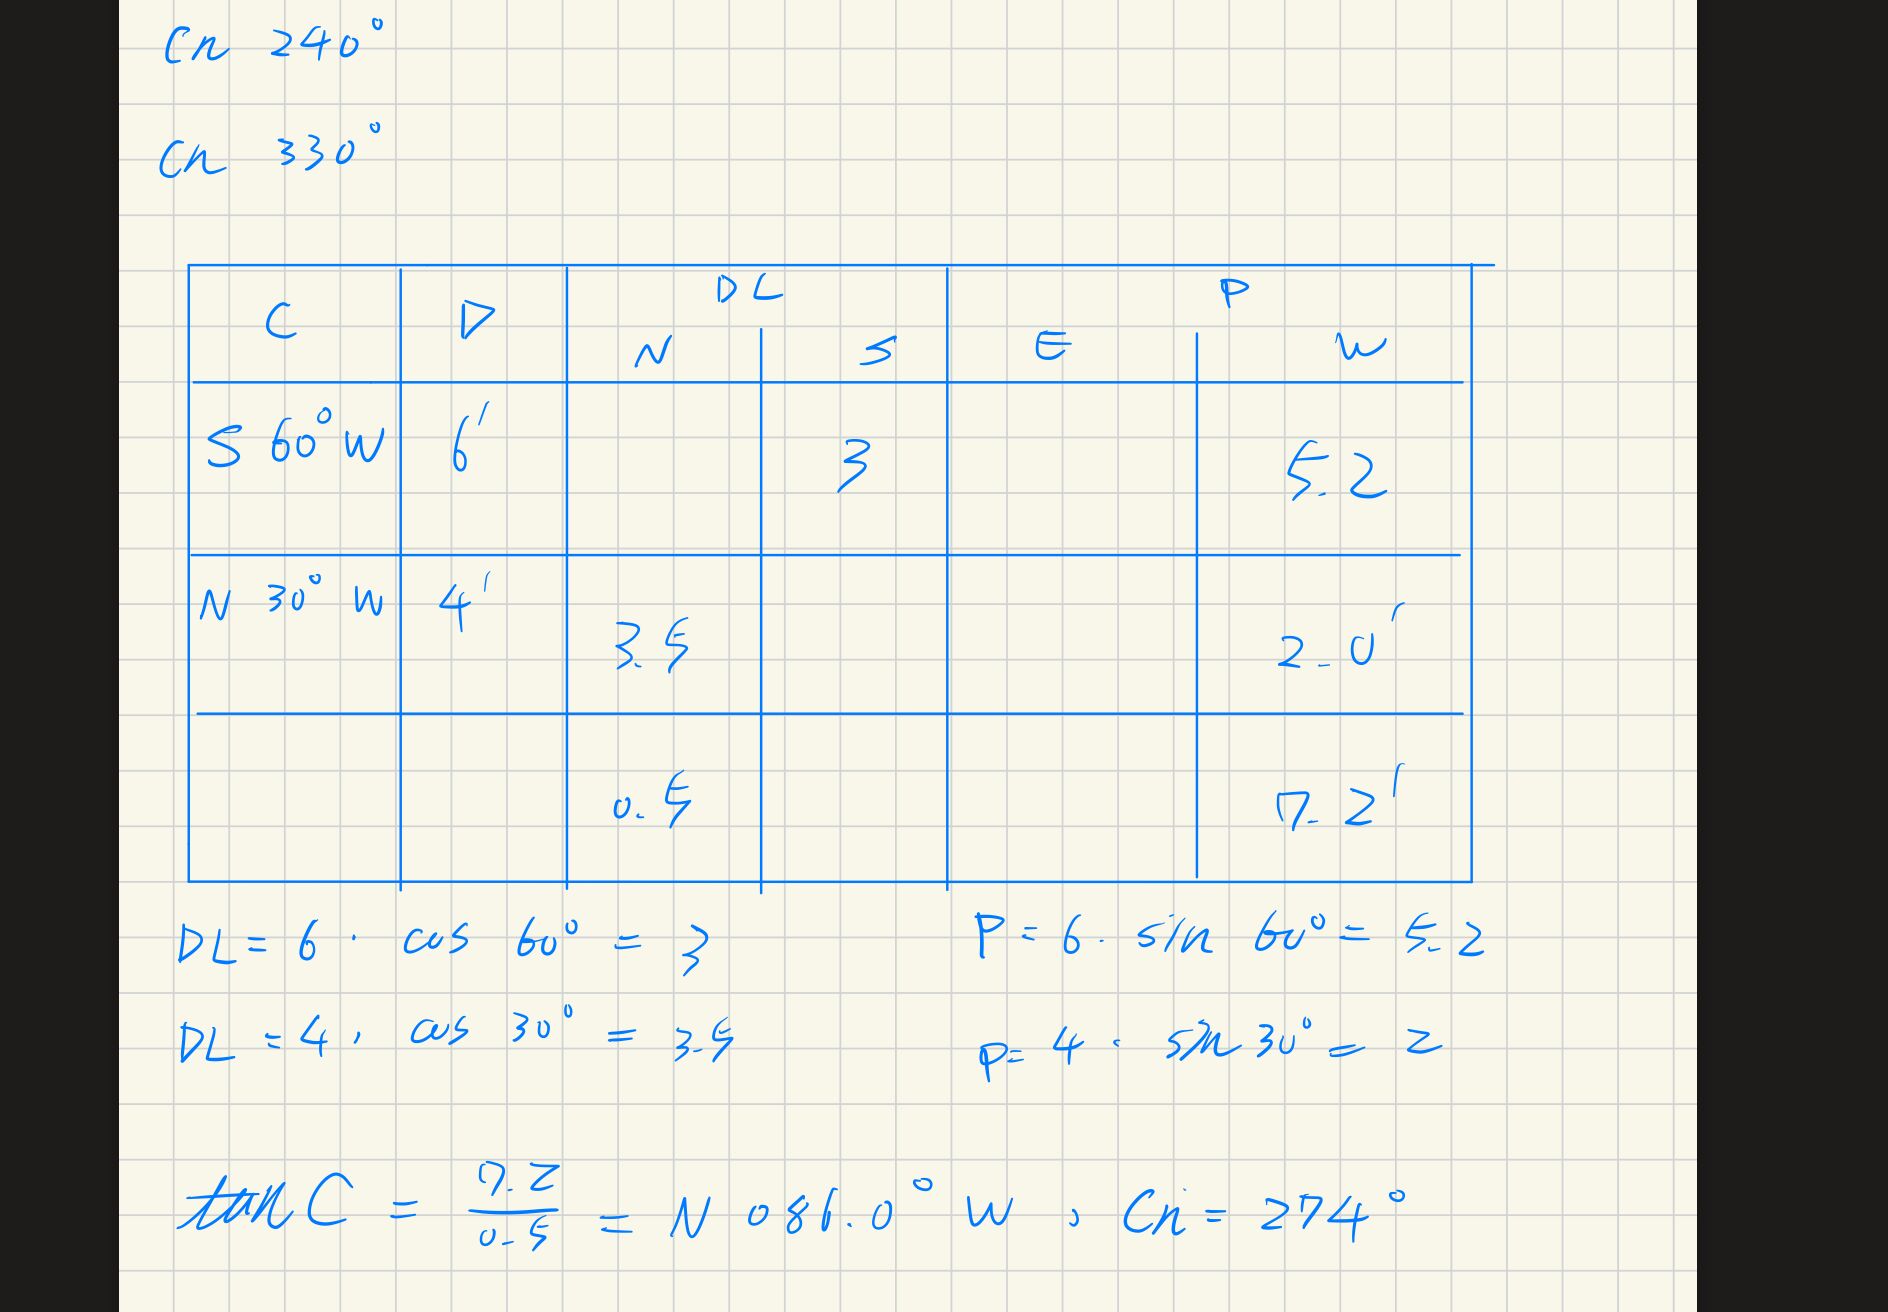 Cn 240°
Cn 330°
C D DL P
N S E W
S 60° W 6' 3 5.2
N 30° W 4' 3.5 2.0'
0.5 7.2'
DL = 6 · cos 60° = 3 P = 6 · sin 60° = 5.2
DL = 4 · cos 30° = 3.5 P = 4 · sin 30° = 2
tan C = 7.2 / 0.5 = N 086.0° W , Cn = 274°